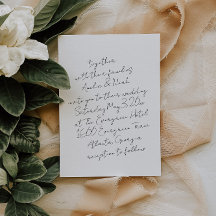 together
with their families
Austin & Leah
invite you to their wedding
Saturday May 3, 20
at the Evergreen Hotel
1600 Evergreen
Atlanta, Georgia
reception to follow